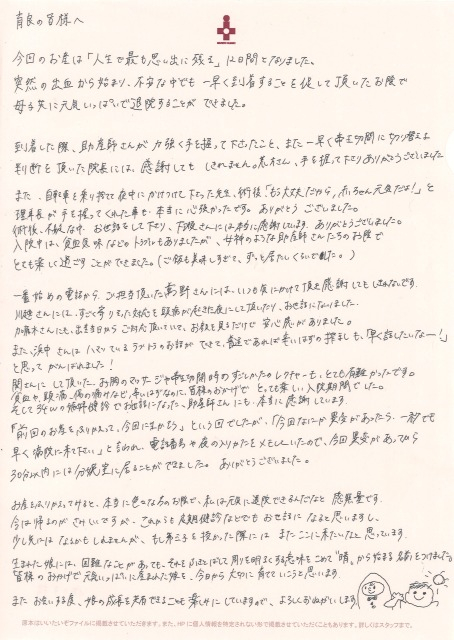 育良の皆様へ
今回のお産は「人生で最も思い出に残る」12日間となりました。
突然の出血から始まり、不安な中でも一早く到着することを促して頂いたお陰で
母子共に元気いっぱいで退院することができました。
到着した際、助産師さんが力強く手を握って下さったこと、また一早く帝王切開に切り替え
判断を頂いた院長には、感謝しても しきれません。 手を握って下さりありがとうございました
また、自転車を乗り捨て夜中にかけつけて下さった先生、術後「もう大丈夫だから、赤ちゃん元気だよ!」と
理事長が手を握ってくれた事も本当に心強かったです。ありがとうございました。
術後、不安な中 お世話をして下さり、 さんには本当に感謝しています。ありがとうございました。
入院中は、貧血 などのトラブルもありましたが、女神のような助産師さんたちのお陰で
とても楽しく過ごすことができました。(ご飯も美味しすぎて、ずっと居たいくらいでした。)
一番始めの電話から、ご担当頂いた さんには、いつも気にかけて頂き感謝してもしきれないです。
川越さんには、すごく寄りそった対応も頭痛が起きた夜にして頂いたり、お世話になりました。
加藤木さんにも、出産当日から ご対応頂いていて、お顔を見るだけで 安心感がありました。
また、浜中さんは ハマっている のお話ができて、 「早く話したいなー!」
と思って がんばれました!
関さんにして頂いた、お胸のマッサージや帝王切開時の レクチャーも、とても有難かったです。
貧血や、頭痛、傷の痛みなど、 はずなのに、皆様のおかげで とっても楽しい入院期間でした。
そして34wの 健診でお世話になった、助産師さんにも、本当に感謝しています。
「前回のお産をふりかえって、今回に生かそう」という回でしたが、「今回なにか異変があったら、一秒でも
早く病院に来て下さい」と言われ、電話番号や夜の入りかたをメモしていたので、今回異変があってから
30分以内には分娩室に居ることができました。ありがとうございました。
お産をふりかえってみると、本当に色々な方のお陰で、私は元気に退院できるんだなと 感無量です。
今は帰るのが さみしいですが、これからも 健診などでも お世話に なると思いますし、
少し先には なるかもしれませんが、もし第三子を授かった際には またここに来たいなと思っています。
生まれた娘には、困難なことがあっても、それをふきとばして周りを明るくする意味をこめて"晴。から始まる名前をつけました。
皆様 のおかげで元気いっぱいに産まれた娘を、今日から大切に育てていこうと思います。
また お会いする 、娘の成長を共有できることも楽しみにしていますので、よろしくおねがいします
原本はいいたいぞファイルに掲載させていただきます。また、HPに個人情報を特定されない形で掲載させていただくこともあります。詳しくはスタッフまで。